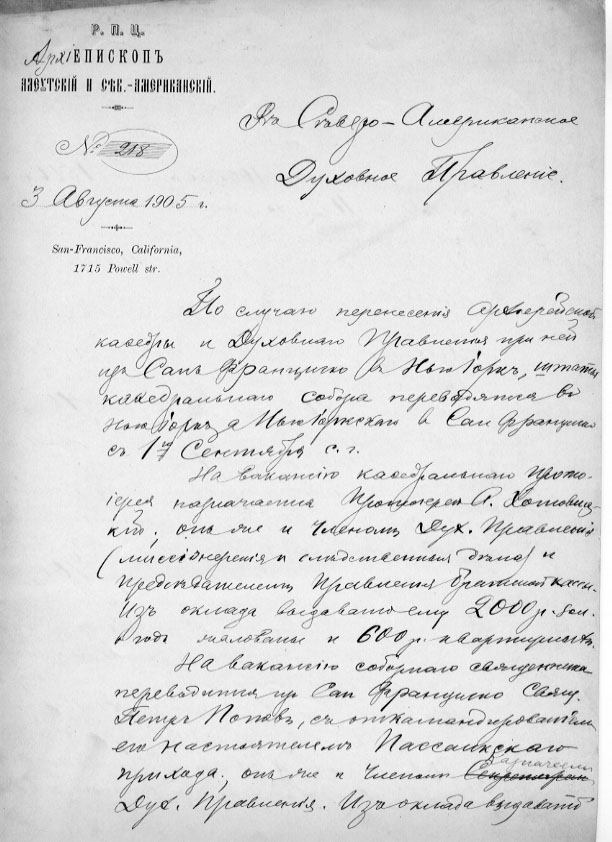 Р. П. Ц.
АрхіЕПИСКОПЪ
АЛЕУТСКІЙ И СѢВ.-АМЕРИКАНСКІЙ.
№ 218
Въ Сѣверо-Американское
Духовное Правленіе.
3 Августа 1905 г.
San-Francisco, California,
1715 Powell str.
По случаю перенесенія архіерейской
каѳедры и Духовнаго Правленія при ней
изъ Санъ Франциско в Нью Іоркъ, штаты
каѳедральнаго собора переводятся въ
Нью Іоркъ, а Нью Іоркскаго в Сан Франциско
съ 1го Сентября с. г.
На вакансію каѳедральнаго прото-
іерея назначается Протоіерей А. Хотовиц-
кій; онъ же и членомъ Дух. Правленія
(миссіонерскія и слѣдственныя дѣла) и
Предсѣдателемъ Правленія братской кассы.
Изъ оклада выдавать ему 2000 р.
в годъ жалованья и 600 р. квартирныхъ.
На вакансію соборнаго священника
переводится из Сан Франциско Свящ.
Петръ Поповъ, съ откомандированіемъ
его настоятелемъ Пассаикскаго
прихода; онъ же и членомъ
Дух. Правленія. Изъ оклада выдавать